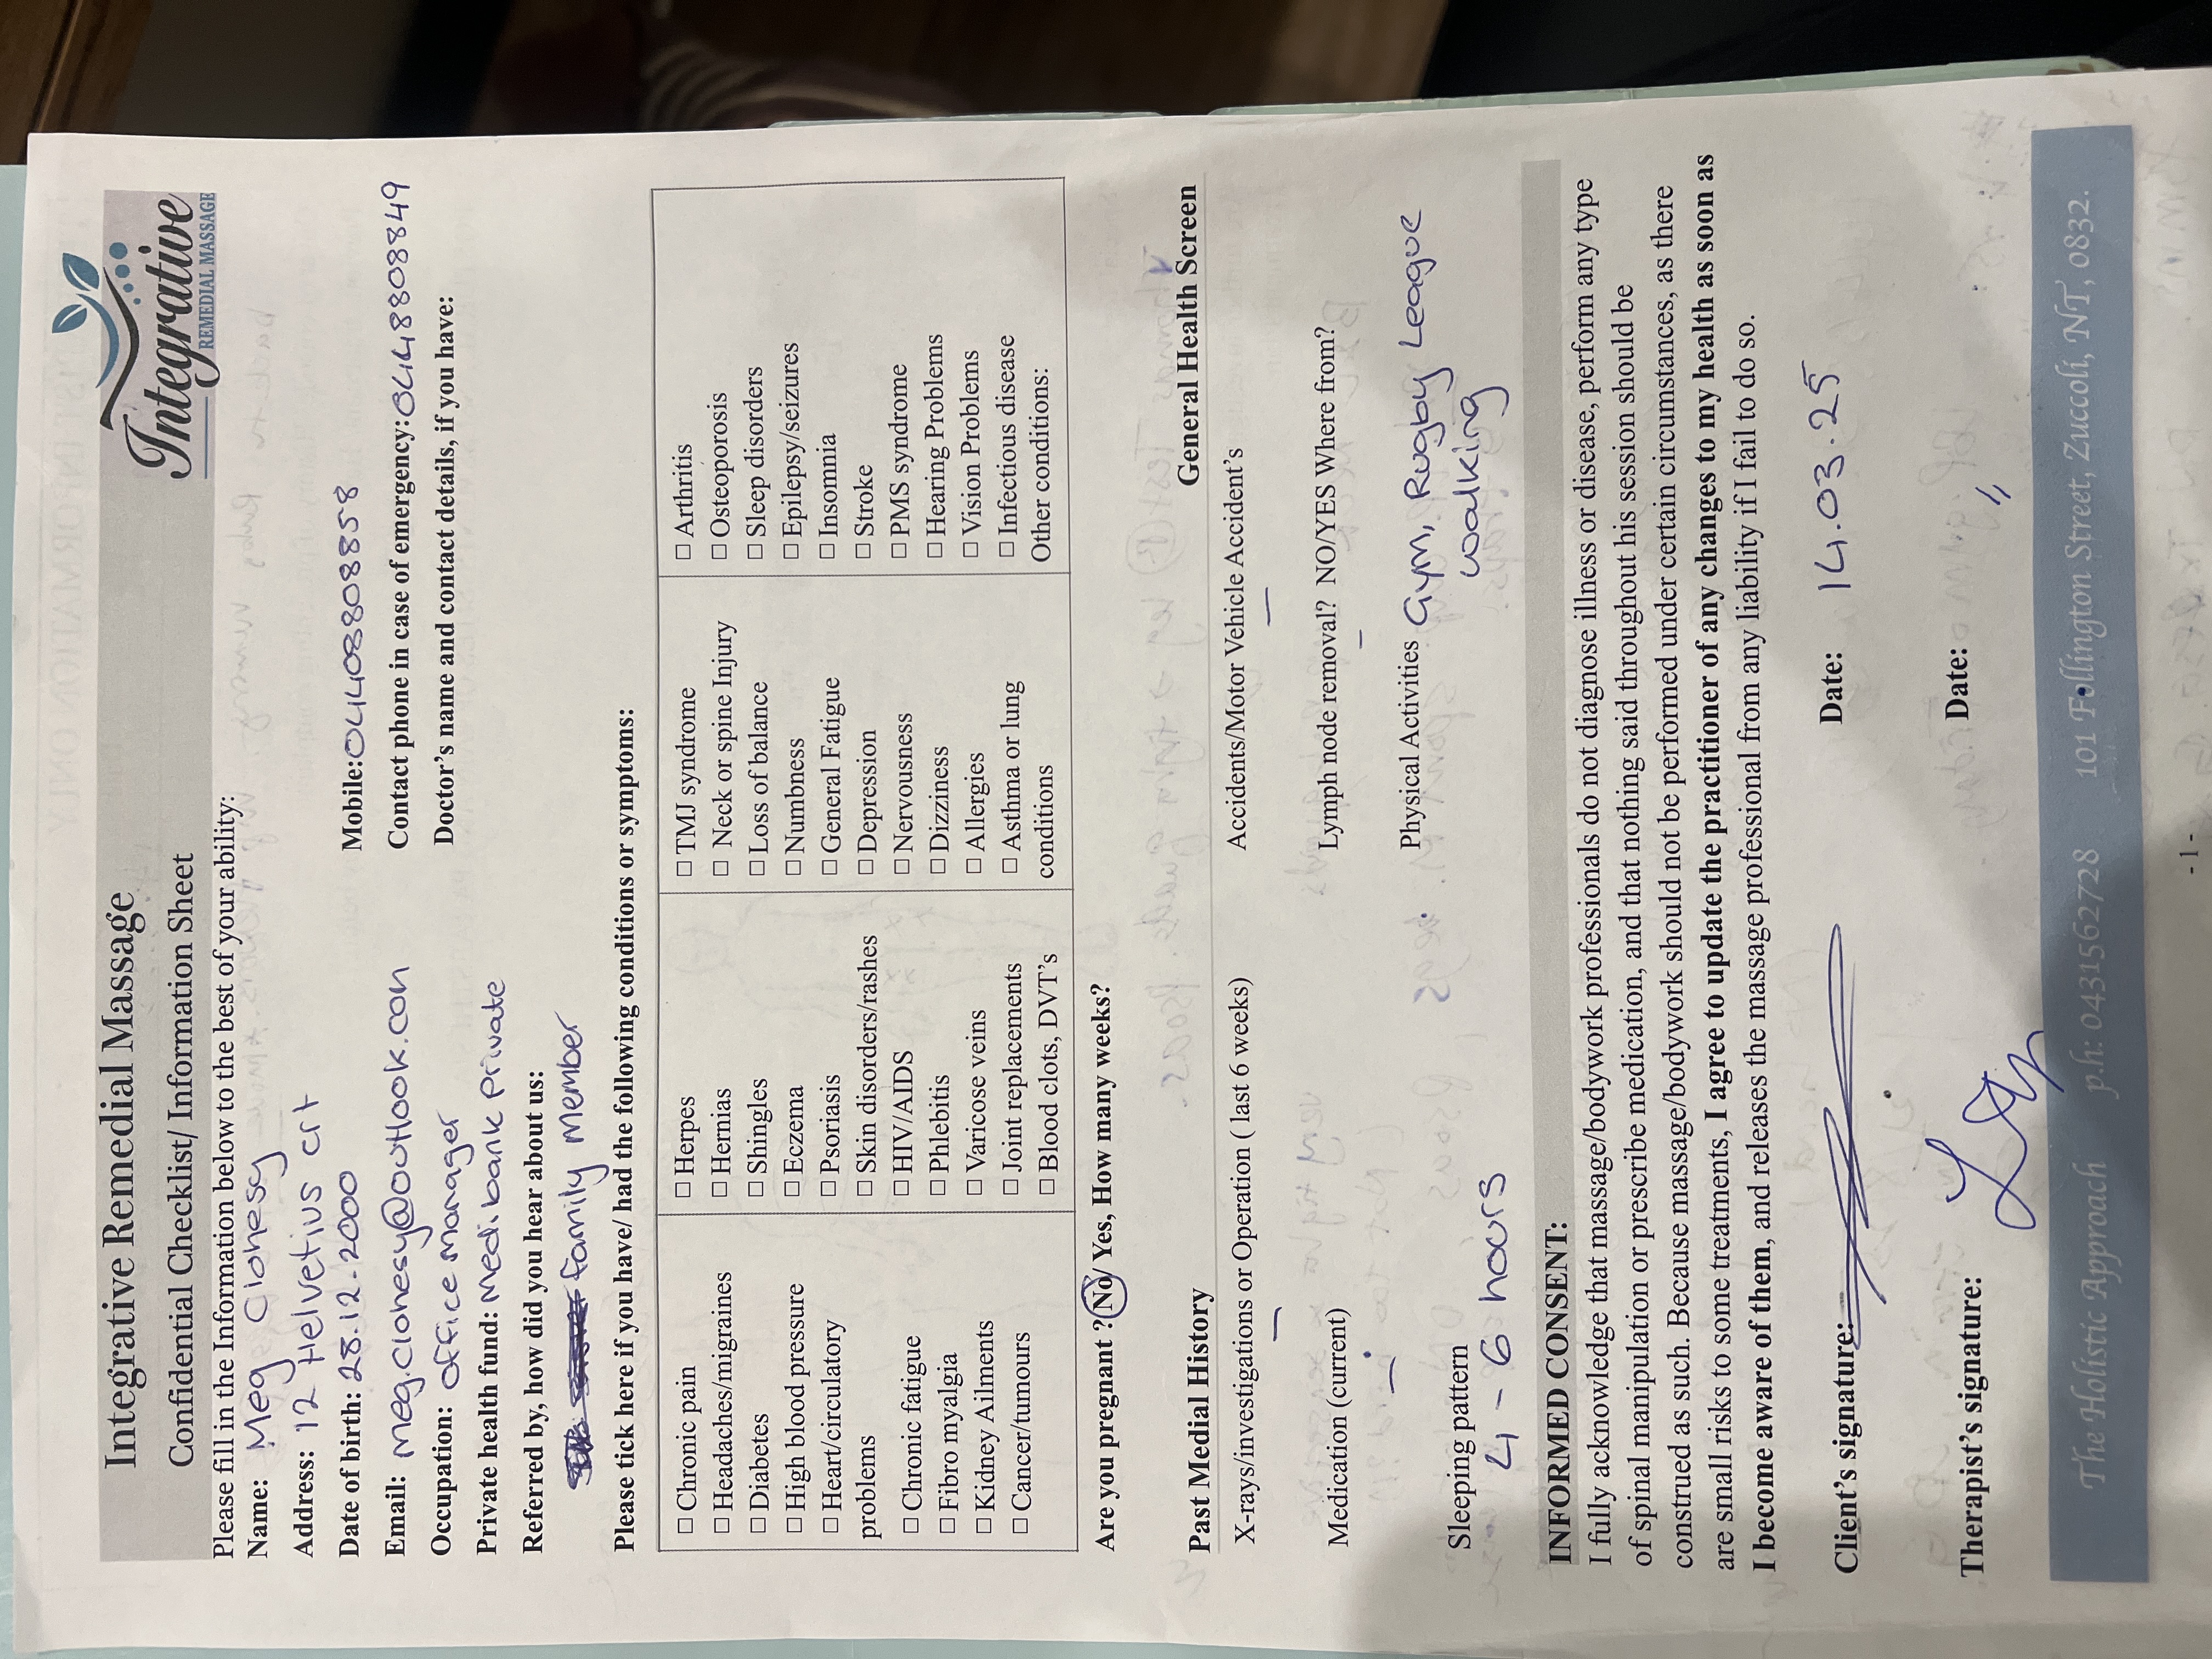 Integrative Remedial Massage
Confidential Checklist/ Information Sheet
Integrative
REMEDIAL MASSAGE
Please fill in the Information below to the best of your ability:
Name: Meg Clohesy
Address: 12 Helvetius crt
Date of birth: 28.12.2000 Mobile: 0440880858
Email: megclohesy@outlook.com Contact phone in case of emergency: 0448808849
Occupation: office manager Doctor's name and contact details, if you have:
Private health fund: Medibank private
Referred by, how did you hear about us:
family member
Please tick here if you have/ had the following conditions or symptoms:
☐ Chronic pain
☐ Headaches/migraines
☐ Diabetes
☐ High blood pressure
☐ Heart/circulatory
problems
☐ Chronic fatigue
☐ Fibro myalgia
☐ Kidney Ailments
☐ Cancer/tumours
☐ Herpes
☐ Hernias
☐ Shingles
☐ Eczema
☐ Psoriasis
☐ Skin disorders/rashes
☐ HIV/AIDS
☐ Phlebitis
☐ Varicose veins
☐ Joint replacements
☐ Blood clots, DVT's
☐ TMJ syndrome
☐ Neck or spine Injury
☐ Loss of balance
☐ Numbness
☐ General Fatigue
☐ Depression
☐ Nervousness
☐ Dizziness
☐ Allergies
☐ Asthma or lung
conditions
☐ Arthritis
☐ Osteoporosis
☐ Sleep disorders
☐ Epilepsy/seizures
☐ Insomnia
☐ Stroke
☐ PMS syndrome
☐ Hearing Problems
☐ Vision Problems
☐ Infectious disease
Other conditions:
Are you pregnant ? No/ Yes, How many weeks?
Past Medial History General Health Screen
X-rays/investigations or Operation ( last 6 weeks) Accidents/Motor Vehicle Accident's
— —
Medication (current) Lymph node removal? NO/YES Where from?
— —
Sleeping pattern Physical Activities Gym, Rugby League
4 - 6 hours walking
INFORMED CONSENT:
I fully acknowledge that massage/bodywork professionals do not diagnose illness or disease, perform any type
of spinal manipulation or prescribe medication, and that nothing said throughout his session should be
construed as such. Because massage/bodywork should not be performed under certain circumstances, as there
are small risks to some treatments, I agree to update the practitioner of any changes to my health as soon as
I become aware of them, and releases the massage professional from any liability if I fail to do so.
Client's signature: Date: 14.03.25
Therapist's signature: Date: "
The Holistic Approach p.h: 0431562728 101 Follington Street, Zuccoli, NT, 0832.
- 1 -